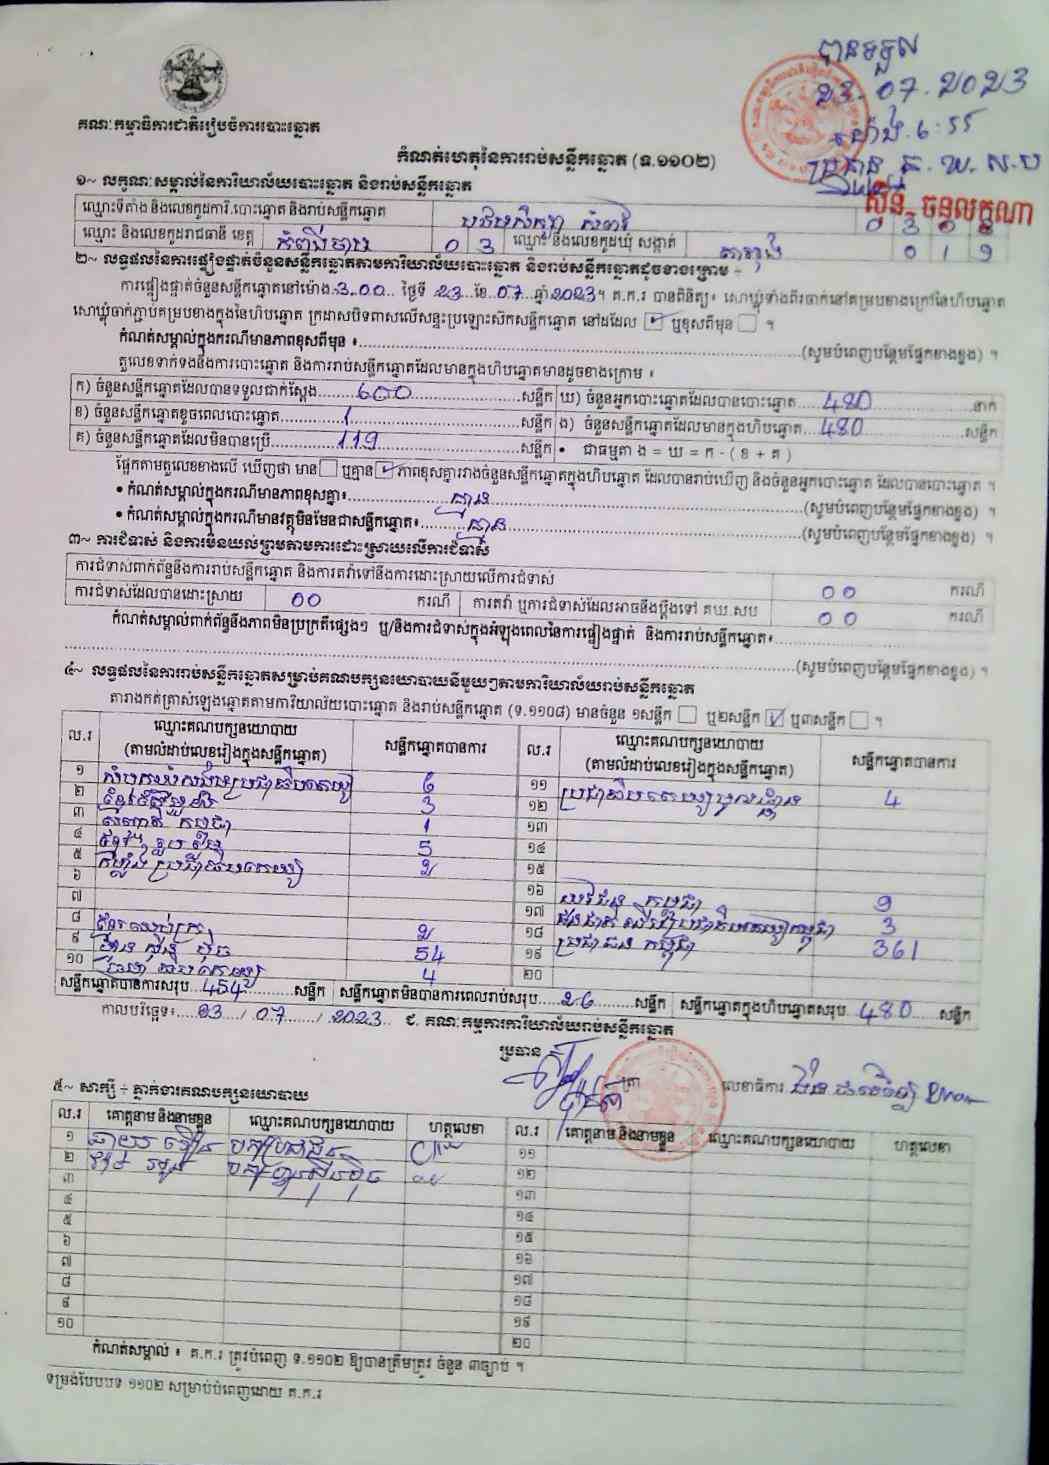 បានទទួល
23.07.2023
ម៉ោង 6:55
ប្រធាន គ.ឃ.ស.ប
ស៊ីន ចន្ទលក្ខណា
គណៈកម្មាធិការជាតិរៀបចំការបោះឆ្នោត
កំណត់ហេតុនៃការរាប់សន្លឹកឆ្នោត (ទ.១១០២)
១~ លក្ខណៈសម្គាល់នៃការិយាល័យបោះឆ្នោត និងរាប់សន្លឹកឆ្នោត
ឈ្មោះទីតាំង និងលេខកូដការិ.បោះឆ្នោត និងរាប់សន្លឹកឆ្នោត បឋមសិក្សា
ឈ្មោះ និងលេខកូដរាជធានី ខេត្ត កំពង់ចាម 0 3 ឈ្មោះ និងលេខកូដឃុំ សង្កាត់
២~ លទ្ធផលនៃការផ្ទៀងផ្ទាត់ចំនួនសន្លឹកឆ្នោតតាមការិយាល័យបោះឆ្នោត និងរាប់សន្លឹកឆ្នោតដូចខាងក្រោម ÷
ការផ្ទៀងផ្ទាត់ចំនួនសន្លឹកឆ្នោតនៅម៉ោង 3.00 ថ្ងៃទី 23 ខែ 07 ឆ្នាំ 2023។ គ.ក.រ បានពិនិត្យ៖ សោឃ្លុំទាំងពីរចាក់នៅគម្របខាងក្រៅនៃហិបឆ្នោត
សោឃ្លុំចាក់ភ្ជាប់គម្របខាងក្នុងនៃហិបឆ្នោត ក្រដាសបិទពាសលើសន្ទះប្រឡោះស៊កសន្លឹកឆ្នោត នៅដដែល ✓ ឬខុសពីមុន ។
កំណត់សម្គាល់ក្នុងករណីមានភាពខុសពីមុន ៖ (សូមបំពេញបន្ថែមផ្នែកខាងខ្នង) ។
តួលេខទាក់ទងនឹងការបោះឆ្នោត និងការរាប់សន្លឹកឆ្នោតដែលមានក្នុងហិបឆ្នោតមានដូចខាងក្រោម ៖
ក) ចំនួនសន្លឹកឆ្នោតដែលបានទទួលជាក់ស្តែង 600 សន្លឹក ឃ) ចំនួនអ្នកបោះឆ្នោតដែលបានបោះឆ្នោត 480 នាក់
ខ) ចំនួនសន្លឹកឆ្នោតខូចពេលបោះឆ្នោត 1 សន្លឹក ង) ចំនួនសន្លឹកឆ្នោតដែលមានក្នុងហិបឆ្នោត 480 សន្លឹក
គ) ចំនួនសន្លឹកឆ្នោតដែលមិនបានប្រើ 119 សន្លឹក • ជាធម្មតា ង = ឃ = ក - ( ខ + គ )
ផ្អែកតាមតួលេខខាងលើ ឃើញថា មាន ឬគ្មាន ✓ ភាពខុសគ្នារវាងចំនួនសន្លឹកឆ្នោតក្នុងហិបឆ្នោត ដែលបានរាប់ឃើញ និងចំនួនអ្នកបោះឆ្នោត ដែលបានបោះឆ្នោត ។
• កំណត់សម្គាល់ក្នុងករណីមានភាពខុសគ្នា៖ គ្មាន (សូមបំពេញបន្ថែមផ្នែកខាងខ្នង) ។
• កំណត់សម្គាល់ក្នុងករណីមានវត្ថុមិនមែនជាសន្លឹកឆ្នោត៖ គ្មាន (សូមបំពេញបន្ថែមផ្នែកខាងខ្នង) ។
៣~ ការជំទាស់ និងការមិនយល់ព្រមតាមការដោះស្រាយលើការជំទាស់
ការជំទាស់ពាក់ព័ន្ធនឹងការរាប់សន្លឹកឆ្នោត និងការតវ៉ាទៅនឹងការដោះស្រាយលើការជំទាស់ 00 ករណី
ការជំទាស់ដែលបានដោះស្រាយ 00 ករណី ការតវ៉ា ឬការជំទាស់ដែលអាចនឹងប្តឹងទៅ គឃ.សប 00 ករណី
កំណត់សម្គាល់ពាក់ព័ន្ធនឹងភាពមិនប្រក្រតីផ្សេងៗ ឬ/និងការជំទាស់ក្នុងអំឡុងពេលនៃការផ្ទៀងផ្ទាត់ និងការរាប់សន្លឹកឆ្នោត៖
(សូមបំពេញបន្ថែមផ្នែកខាងខ្នង) ។
៤~ លទ្ធផលនៃការរាប់សន្លឹកឆ្នោតសម្រាប់គណបក្សនយោបាយនីមួយៗតាមការិយាល័យរាប់សន្លឹកឆ្នោត
តារាងកត់ត្រាសំឡេងឆ្នោតតាមការិយាល័យបោះឆ្នោត និងរាប់សន្លឹកឆ្នោត (ទ.១១០៨) មានចំនួន ១សន្លឹក ឬ២សន្លឹក ✓ ឬ៣សន្លឹក ។
ល.រ ឈ្មោះគណបក្សនយោបាយ (តាមលំដាប់លេខរៀងក្នុងសន្លឹកឆ្នោត) សន្លឹកឆ្នោតបានការ ល.រ ឈ្មោះគណបក្សនយោបាយ (តាមលំដាប់លេខរៀងក្នុងសន្លឹកឆ្នោត) សន្លឹកឆ្នោតបានការ
១ 6 ១១ ប្រជាធិបតេយ្យមូលដ្ឋាន 4
២ 3 ១២
៣ កម្ពុជា 1 ១៣
៤ 5 ១៤
៥ ប្រជាធិបតេយ្យ 2 ១៥
៦ ១៦ យុវជន កម្ពុជា 9
៧ ១៧ 3
៨ 2 ១៨ ប្រជាជន កម្ពុជា 361
៩ ហ៊្វុនស៊ិនប៉ិច 54 ១៩
១០ 4 ២០
សន្លឹកឆ្នោតបានការសរុប 454 សន្លឹក សន្លឹកឆ្នោតមិនបានការពេលរាប់សរុប 26 សន្លឹក សន្លឹកឆ្នោតក្នុងហិបឆ្នោតសរុប 480 សន្លឹក
កាលបរិច្ឆេទ៖ 23 / 07 / 2023 ៩. គណៈកម្មការការិយាល័យរាប់សន្លឹកឆ្នោត
ប្រធាន ត្រា លេខាធិការ
៥~ សាក្សី ÷ ភ្នាក់ងារគណបក្សនយោបាយ
ល.រ គោត្តនាម និងនាមខ្លួន ឈ្មោះគណបក្សនយោបាយ ហត្ថលេខា ល.រ គោត្តនាម និងនាមខ្លួន ឈ្មោះគណបក្សនយោបាយ ហត្ថលេខា
១ បក្សប្រជាជន ១១
២ បក្សហ្វ៊ុនស៊ិនប៉ិច ១២
៣ ១៣
៤ ១៤
៥ ១៥
៦ ១៦
៧ ១៧
៨ ១៨
៩ ១៩
១០ ២០
កំណត់សម្គាល់ ៖ គ.ក.រ ត្រូវបំពេញ ទ.១១០២ ឱ្យបានត្រឹមត្រូវ ចំនួន ៣ច្បាប់ ។
ទម្រង់បែបបទ ១១០២ សម្រាប់បំពេញដោយ គ.ក.រ